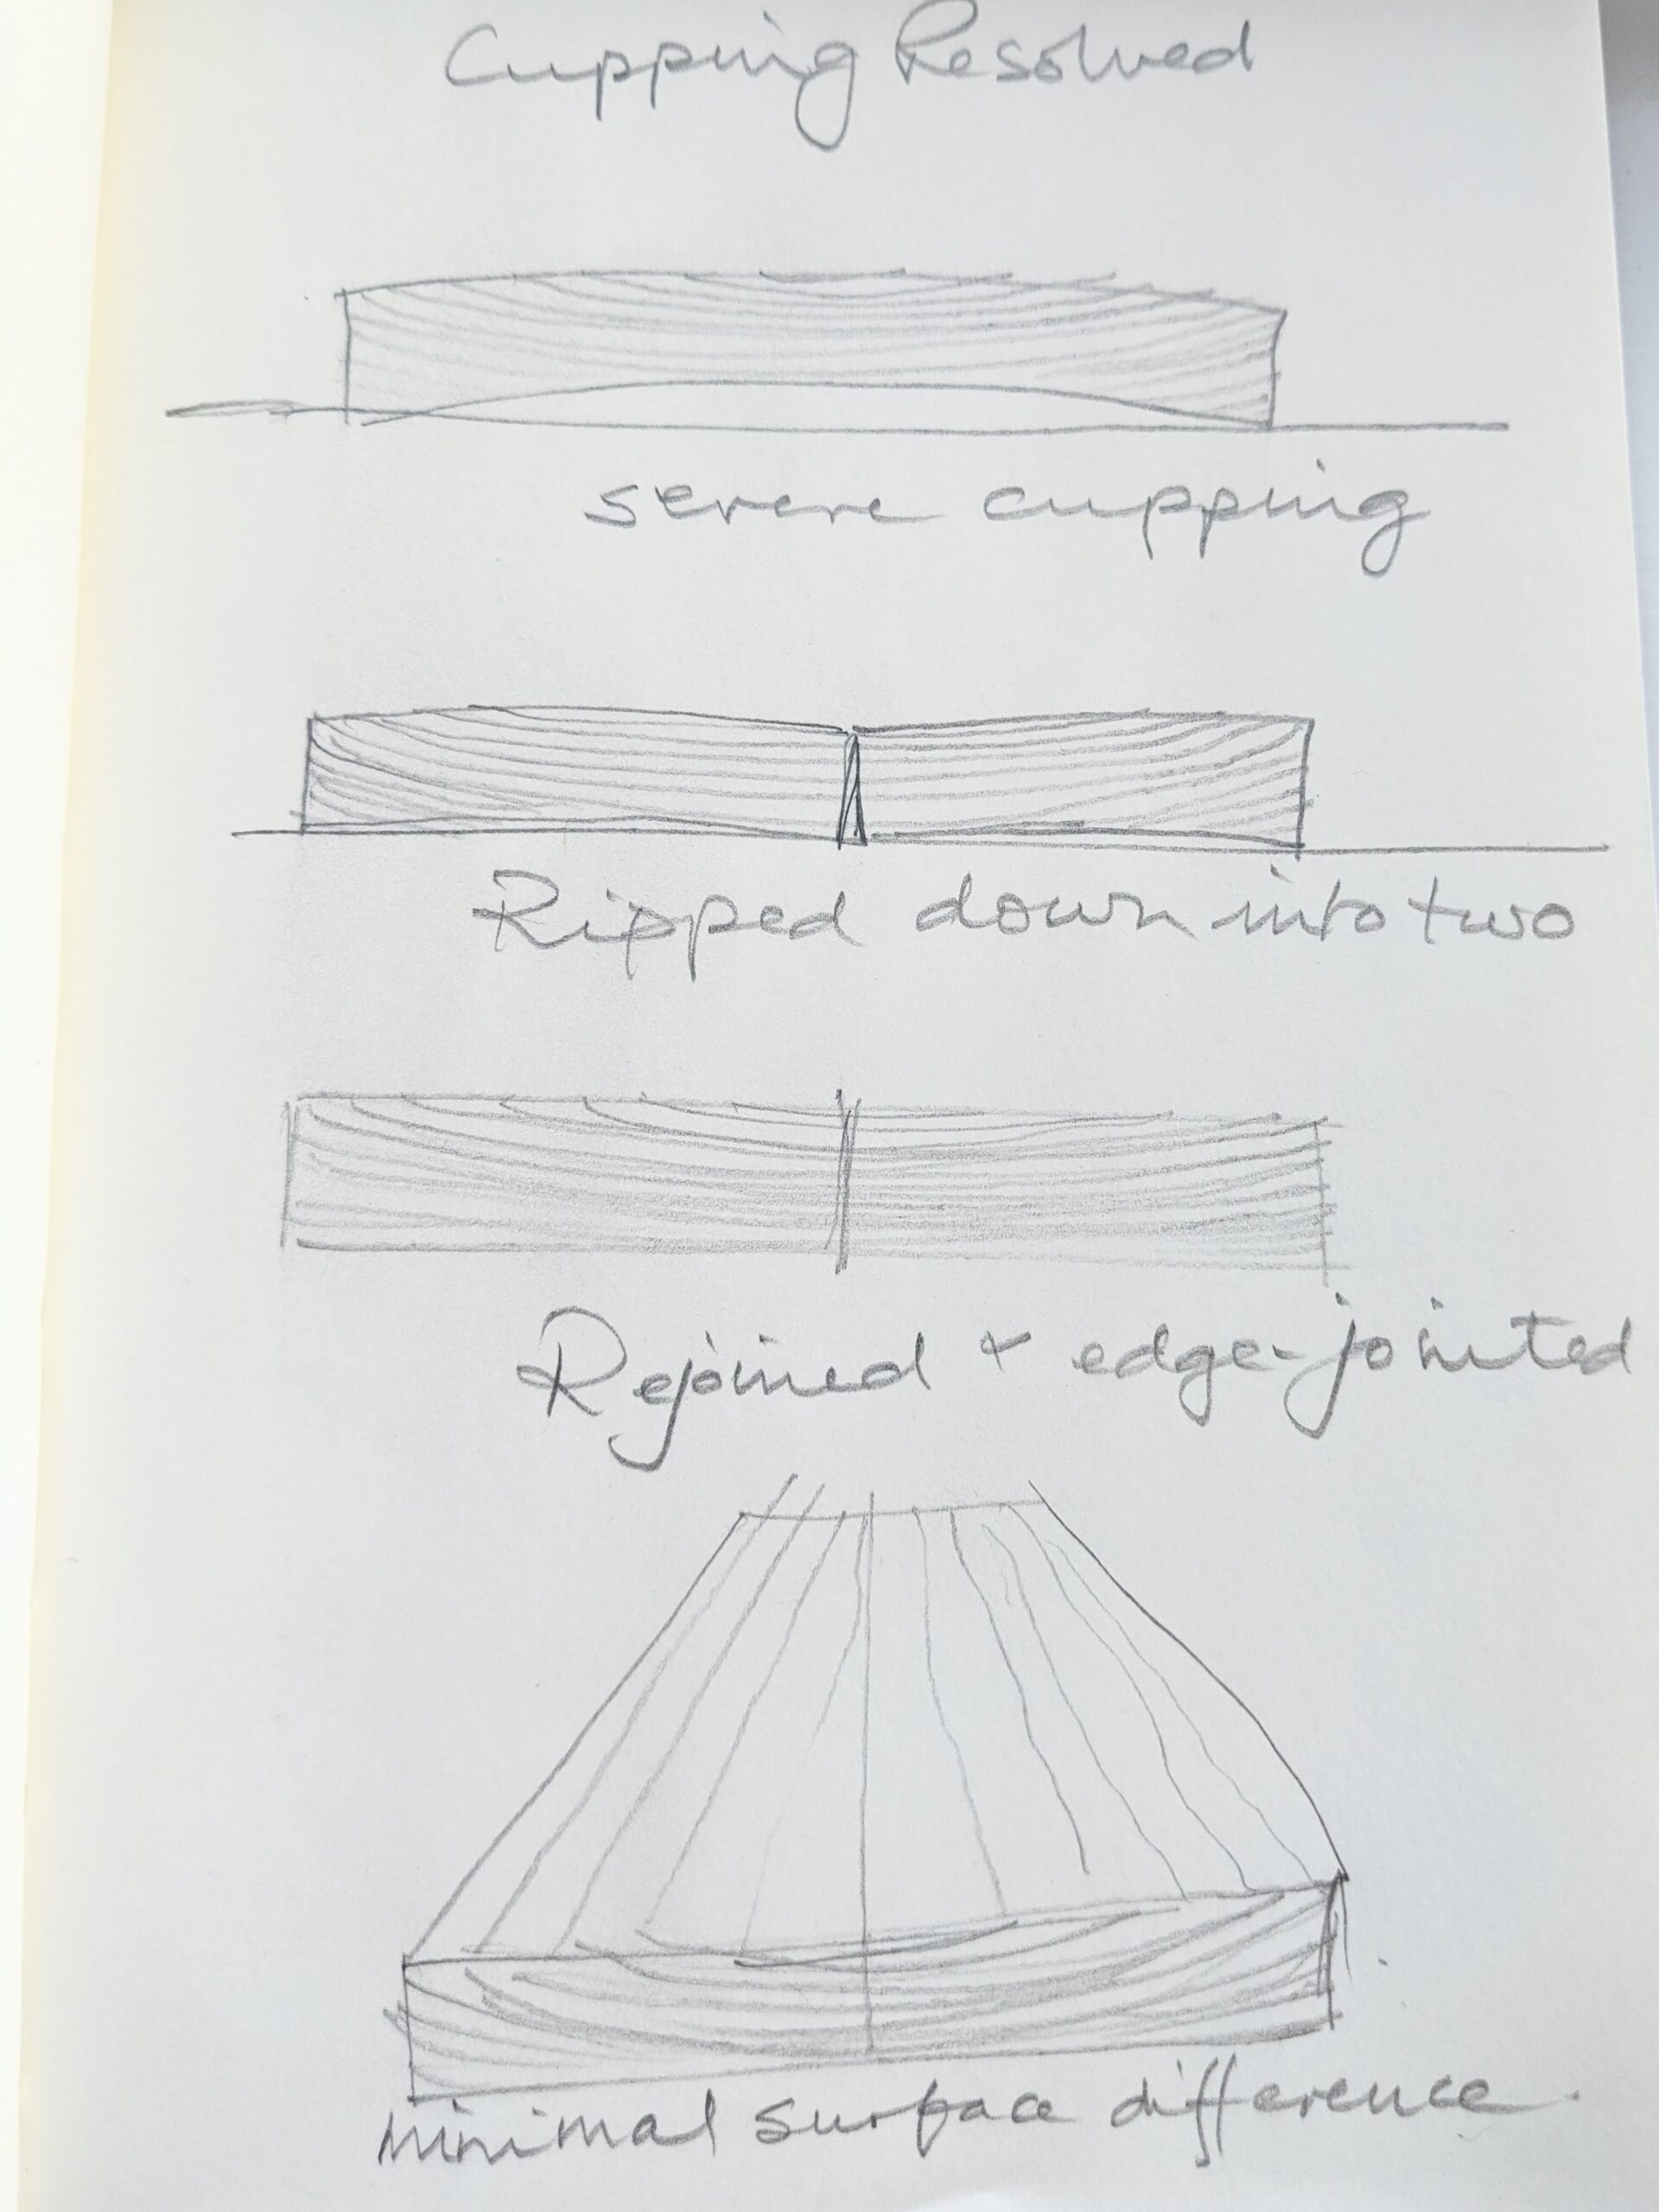 Cupping Resolved
severe cupping
Ripped down into two
Rejoined + edge-jointed
minimal surface difference.